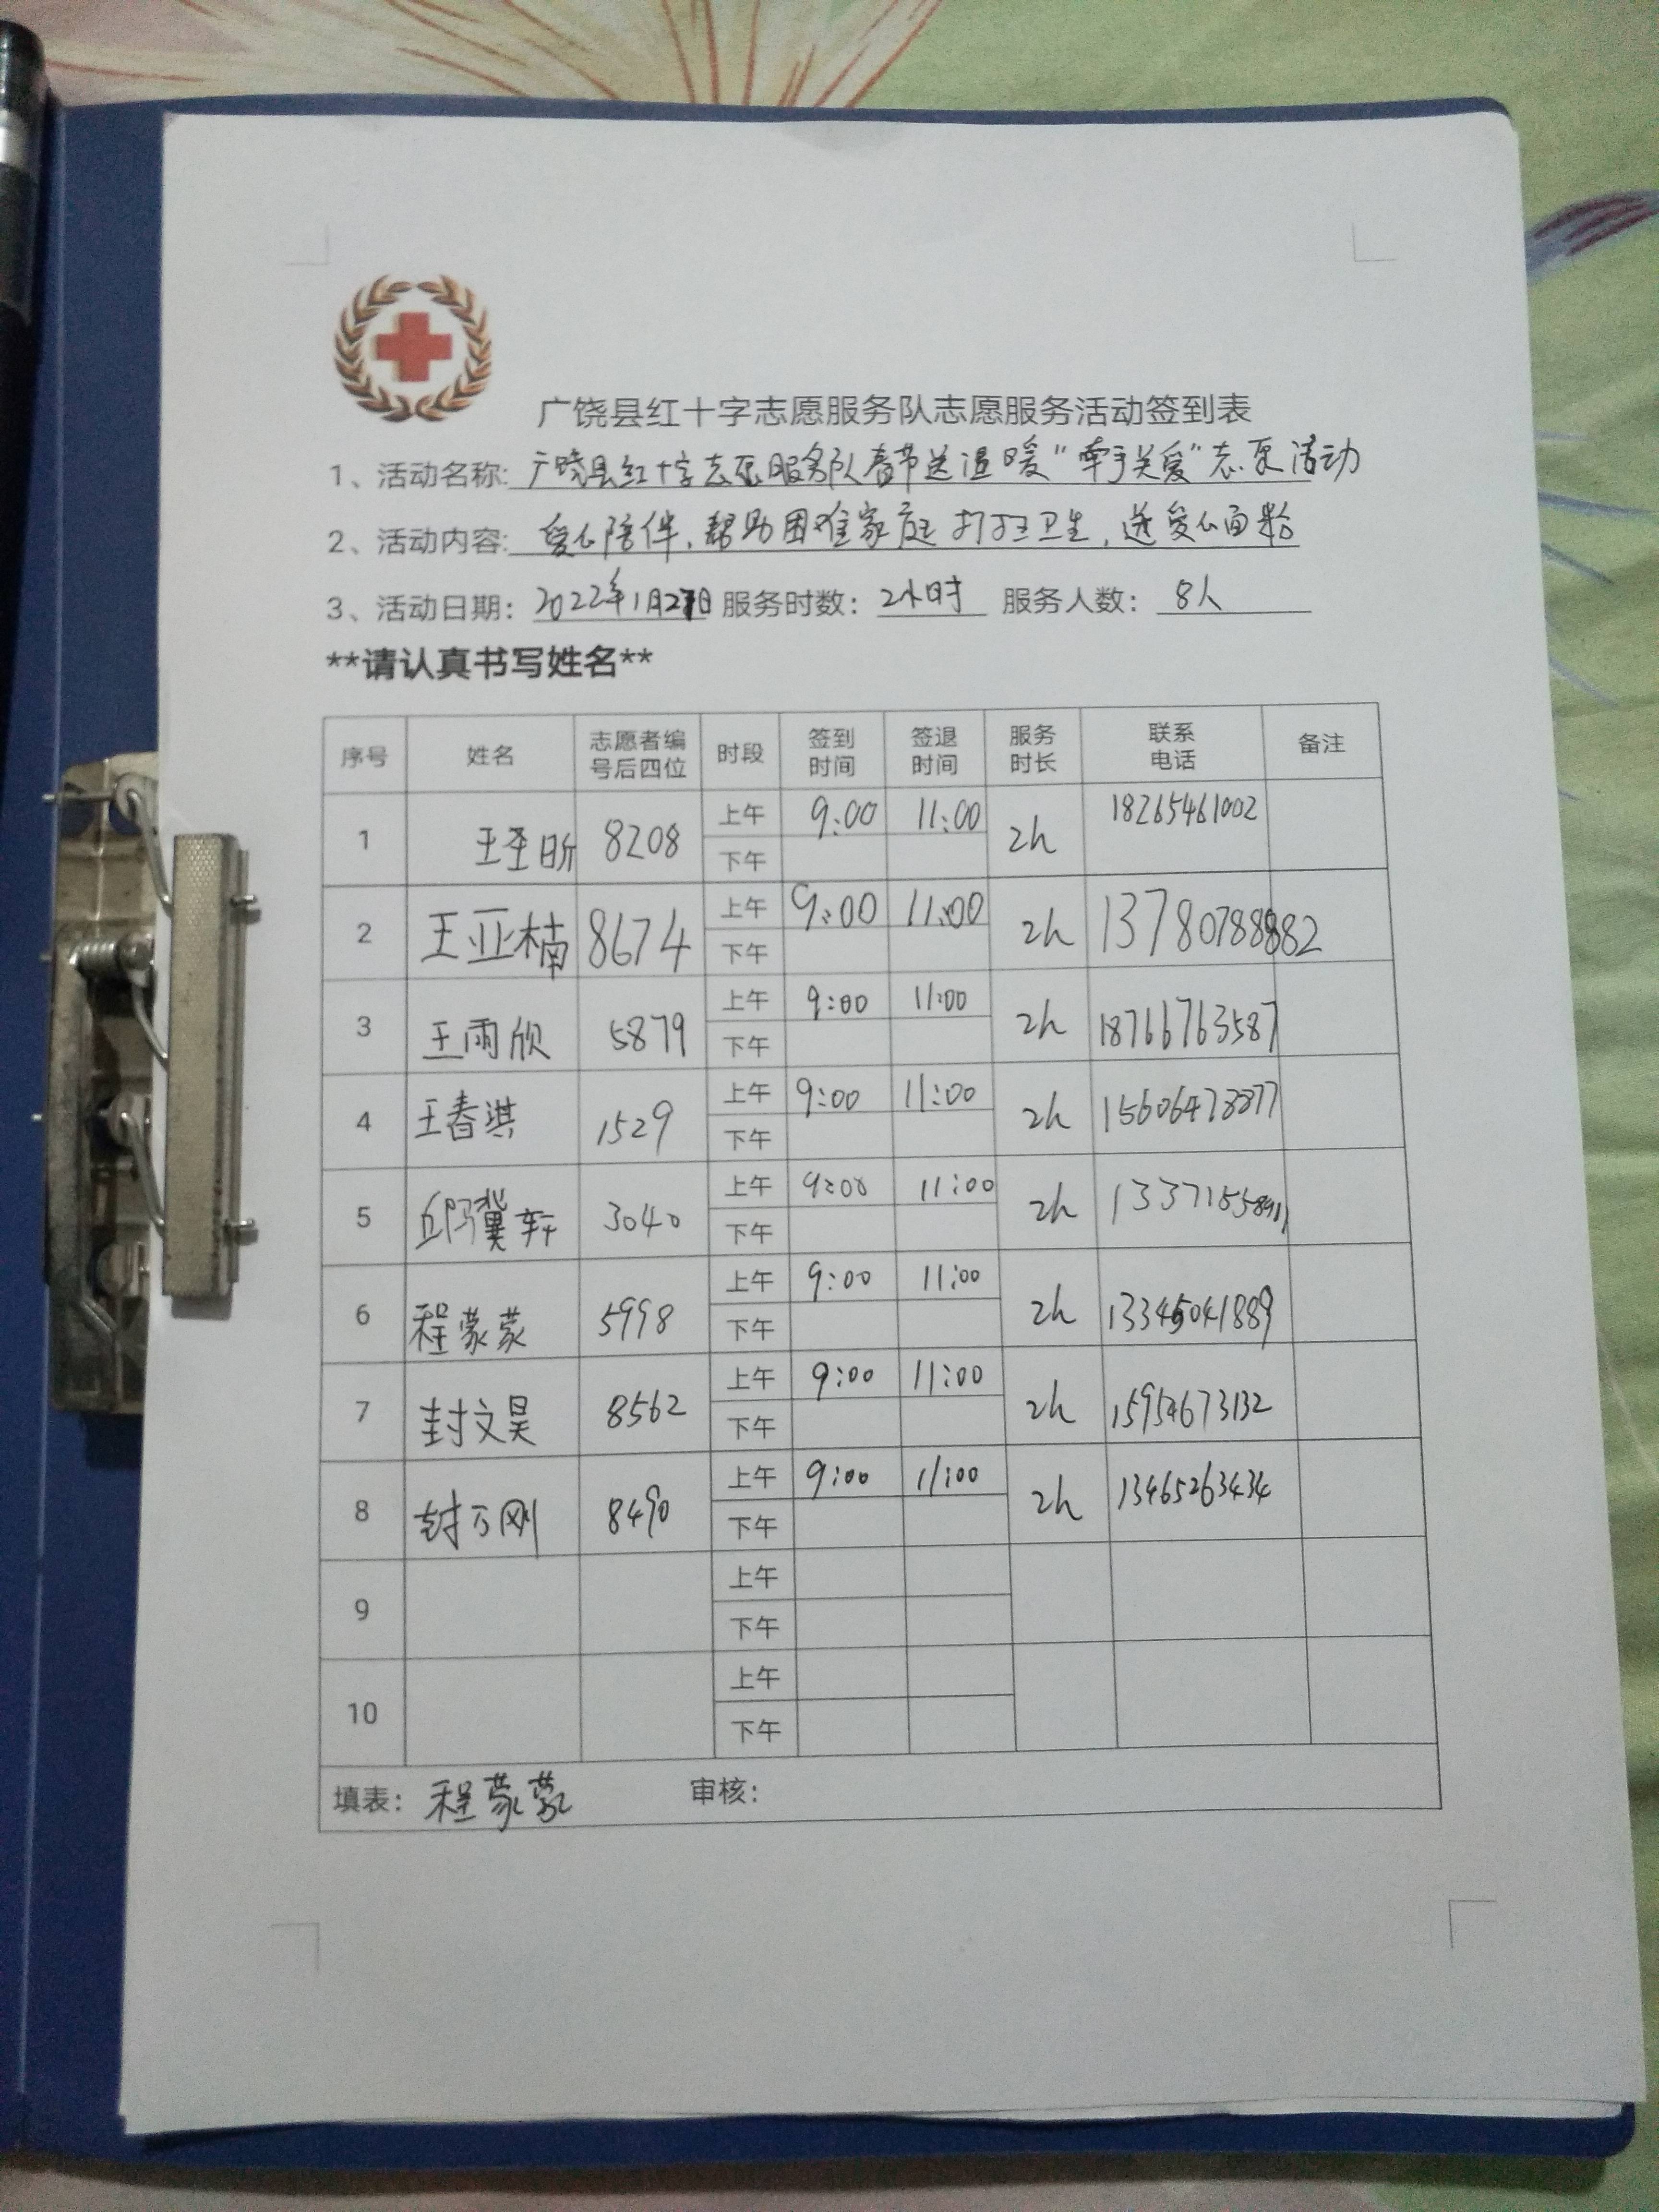 广饶县红十字志愿服务队志愿服务活动签到表
1、活动名称: 广饶县红十字志愿服务队春节送温暖“牵手关爱”志愿活动
2、活动内容: 爱心陪伴,帮助困难家庭打扫卫生,送爱心面粉
3、活动日期: 2022年1月27日 服务时数: 2小时 服务人数: 8人
**请认真书写姓名**
序号 姓名 志愿者编号后四位 时段 签到时间 签退时间 服务时长 联系电话 备注
1 王圣昕 8208 上午 9:00 11:00 2h 18265461002
下午
2 王亚楠 8674 上午 9:00 11:00 2h
下午
3 王雨欣 5879 上午 9:00 11:00 2h 18766763587
下午
4 王春淇 1529 上午 9:00 11:00 2h
下午
5 3040 上午 9:00 11:00 2h
下午
6 程蒙蒙 5998 上午 9:00 11:00 2h 13345041889
下午
7 封文昊 8562 上午 9:00 11:00 2h 15954673132
下午
8 8490 上午 9:00 11:00 2h 13465263434
下午
9 上午
下午
10 上午
下午
填表: 程蒙蒙 审核: